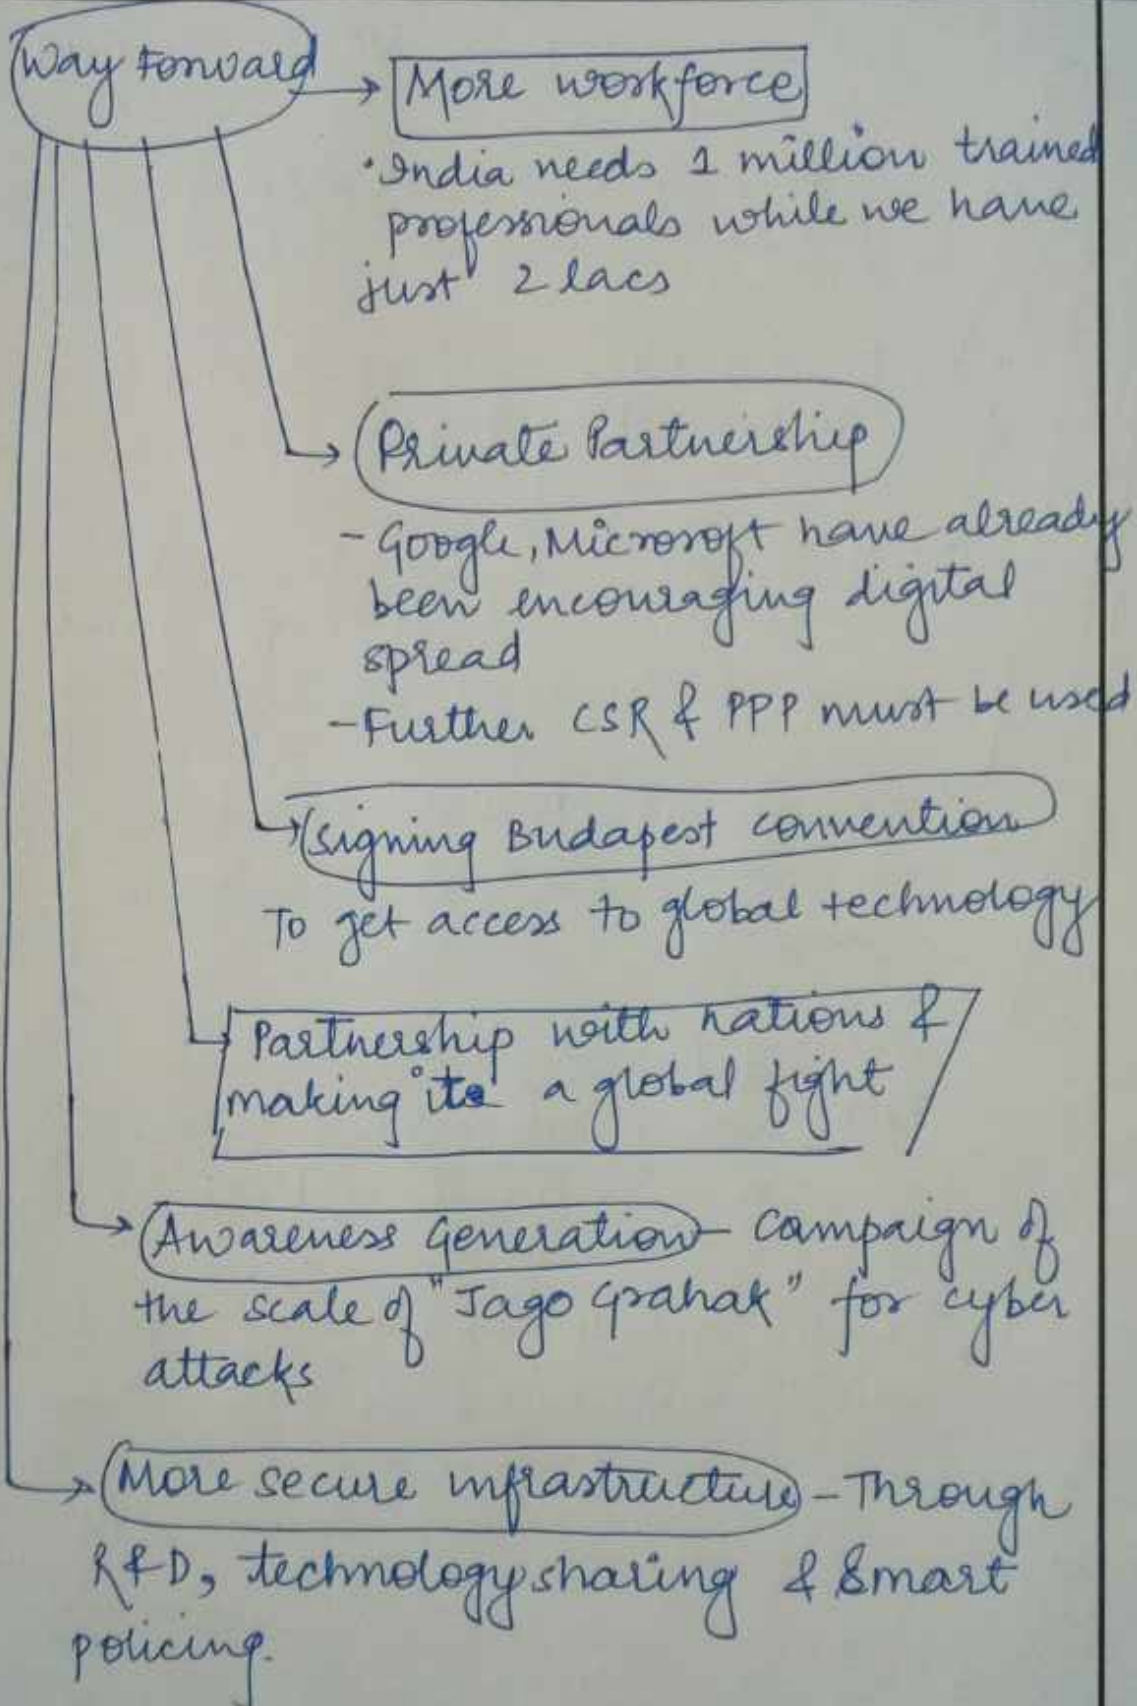 Way Forward
More workforce
• India needs 1 million trained
professionals while we have
just 2 lacs
Private Partnership
- Google, Microsoft have already
been encouraging digital
spread
- Further CSR & PPP must be used
Signing Budapest convention
To get access to global technology
Partnership with nations &
making it a global fight
Awareness Generation - Campaign of
the scale of "Jago Grahak" for cyber
attacks
More secure infrastructure - Through
R&D, technology sharing & Smart
policing.